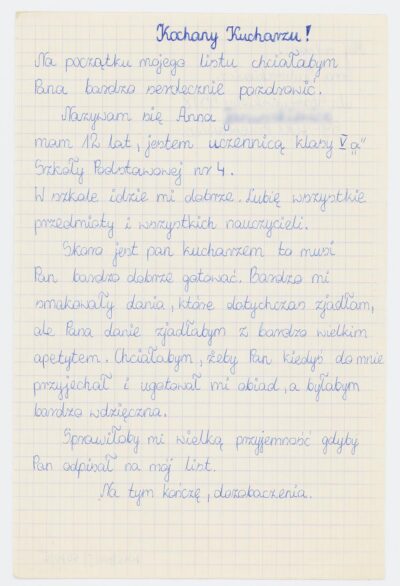 Kochany Kucharzu!
Na początku mojego listu chciałabym
Pana bardzo serdecznie pozdrowić.
Nazywam się Anna
mam 12 lat, jestem uczennicą klasy V "a"
Szkoły Podstawowej nr 4.
W szkole idzie mi dobrze. Lubię wszystkie
przedmioty i wszystkich nauczycieli.
Skoro jest pan kucharzem to musi
Pan bardzo dobrze gotować. Bardzo mi
smakowały dania, które dotychczas zjadłam,
ale Pana danie zjadłabym z bardzo wielkim
apetytem. Chciałabym, żeby Pan kiedyś do mnie
przyjechał i ugotował mi obiad, a byłabym
bardzo wdzięczna.
Sprawiłoby mi wielką przyjemność gdyby
Pan odpisał na mój list.
Na tym kończę, dozobaczenia.